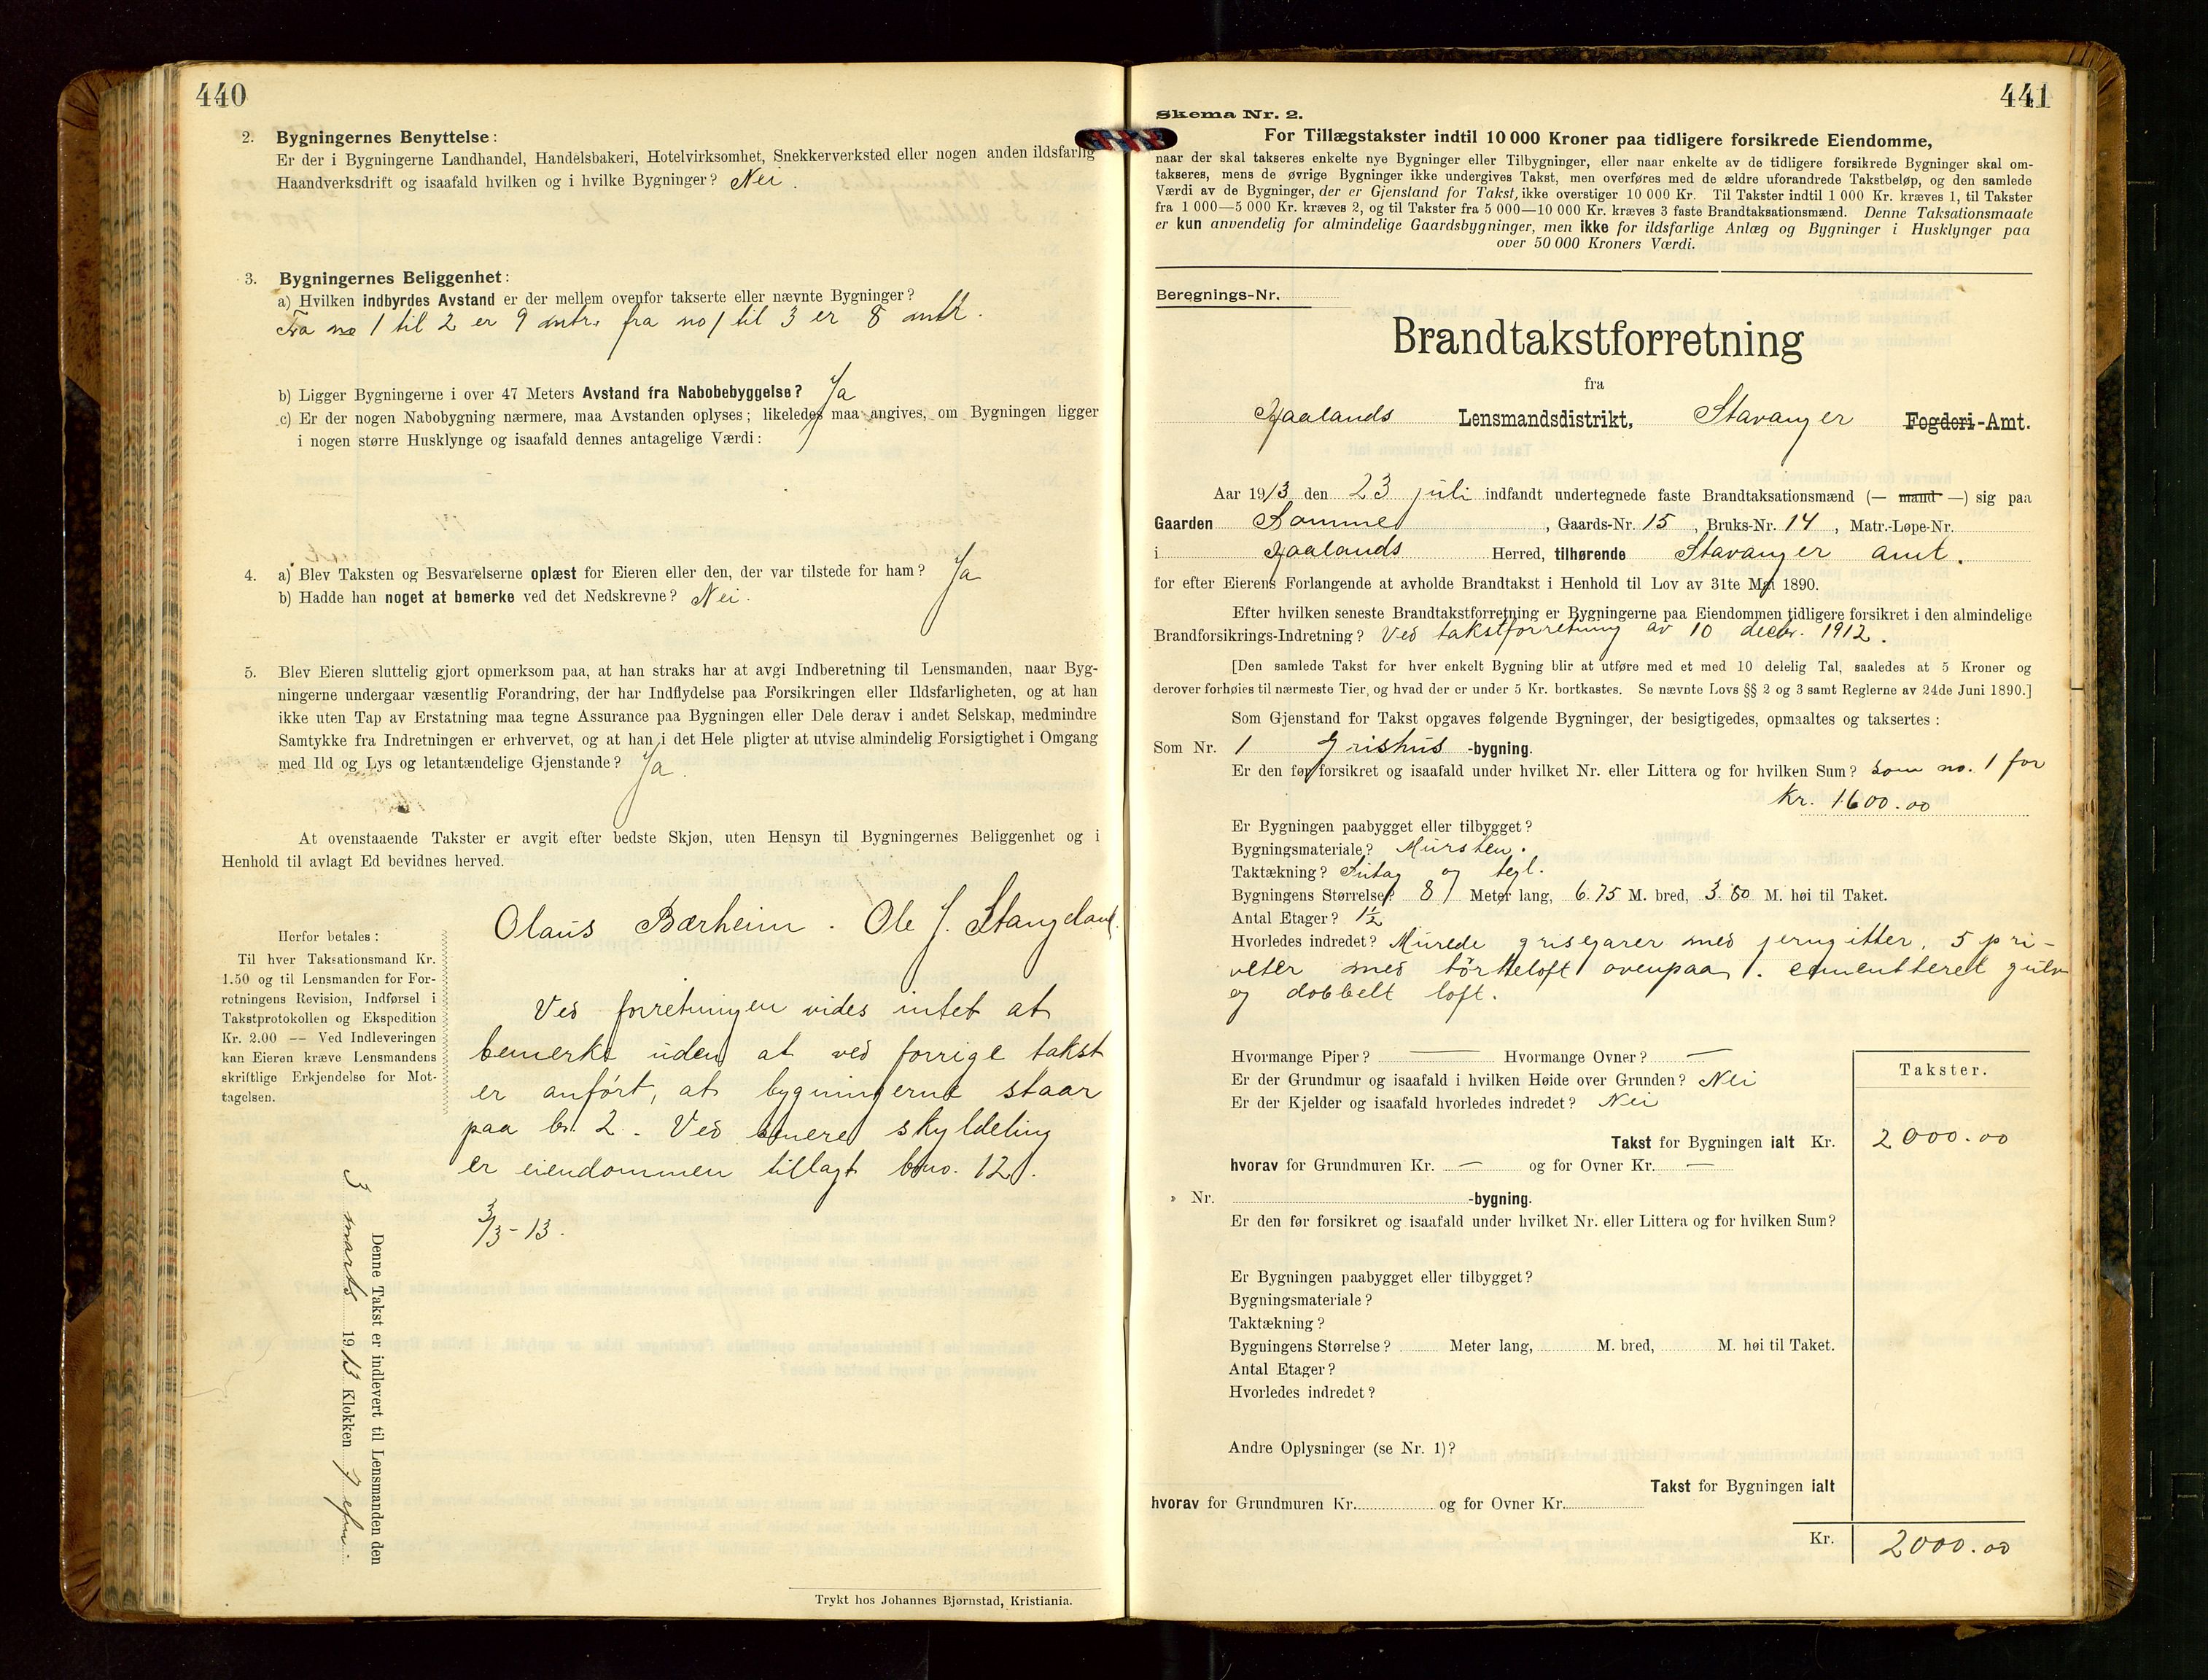 440
2. Bygningernes Benyttelse:
Er der i Bygningerne Landhandel, Handelsbakeri, Hotelvirksomhet, Snekkerverksted eller nogen anden ildsfarlig
Haandverksdrift og isaafald hvilken og i hvilke Bygninger? Nei.
3. Bygningernes Beliggenhet:
a) Hvilken indbyrdes Avstand er der mellem ovenfor takserte eller nævnte Bygninger?
Fra no 1 til 2 er 9 mtr. fra no 1 til 3 er 8 mtr.
b) Ligger Bygningerne i over 47 Meters Avstand fra Nabobebyggelse? Ja
c) Er der nogen Nabobygning nærmere, maa Avstanden oplyses; likeledes maa angives, om Bygningen ligger
i nogen større Husklynge og isaafald dennes antagelige Værdi:
4. a) Blev Taksten og Besvarelserne oplæst for Eieren eller den, der var tilstede for ham? Ja
b) Hadde han noget at bemerke ved det Nedskrevne? Nei.
5. Blev Eieren sluttelig gjort opmerksom paa, at han straks har at avgi Indberetning til Lensmanden, naar Byg-
ningerne undergaar væsentlig Forandring, der har Indflydelse paa Forsikringen eller Ildsfarligheten, og at han
ikke uten Tap av Erstatning maa tegne Assurance paa Bygningen eller Dele derav i andet Selskap, medmindre
Samtykke fra Indretningen er erhvervet, og at han i det Hele pligter at utvise almindelig Forsigtighet i Omgang
med Ild og Lys og letantændelige Gjenstande? Ja.
At ovenstaaende Takster er avgit efter bedste Skjøn, uten Hensyn til Bygningernes Beliggenhet og i
Henhold til avlagt Ed bevidnes herved.
Olaus Bærheim. Ole J. Stangeland.
Herfor betales:
Til hver Taksationsmand Kr.
1.50 og til Lensmanden for For-
retningens Revision, Indførsel i
Takstprotokollen og Ekspedition
Kr. 2.00 — Ved Indleveringen
kan Eieren kræve Lensmandens
skriftlige Erkjendelse for Mot-
tagelsen.
Ved forretningen vides intet at
bemerke uden at ved forrige takst
er anført, at bygningerne staar
paa br. 2. Ved senere skyldeling
er eiendommen tillagt brno. 12.
3/3-13.
Denne Takst er indlevert til Lensmanden den
3 marts 1913 Klokken 7 efm.
Trykt hos Johannes Bjørnstad, Kristiania.
441
Skema Nr. 2.
For Tillægstakster indtil 10 000 Kroner paa tidligere forsikrede Eiendomme,
naar der skal takseres enkelte nye Bygninger eller Tilbygninger, eller naar enkelte av de tidligere forsikrede Bygninger skal om-
takseres, mens de øvrige Bygninger ikke undergives Takst, men overføres med de ældre uforandrede Takstbeløp, og den samlede
Værdi av de Bygninger, der er Gjenstand for Takst, ikke overstiger 10 000 Kr. Til Takster indtil 1 000 Kr. kræves 1, til Takster
fra 1 000—5 000 Kr. kræves 2, og til Takster fra 5 000—10 000 Kr. kræves 3 faste Brandtaksationsmænd. Denne Taksationsmaate
er kun anvendelig for almindelige Gaardsbygninger, men ikke for ildsfarlige Anlæg og Bygninger i Husklynger paa
over 50 000 Kroners Værdi.
Beregnings-Nr.
Brandtakstforretning
fra
Haalands Lensmandsdistrikt, Stavanger Fogderi-Amt.
Aar 1913 den 23 juli indfandt undertegnede faste Brandtaksationsmænd (— mand —) sig paa
Gaarden Somme, Gaards-Nr. 15, Bruks-Nr. 14, Matr.-Løpe-Nr.
i Haalands Herred, tilhørende Stavanger amt.
for efter Eierens Forlangende at avholde Brandtakst i Henhold til Lov av 31te Mai 1890.
Efter hvilken seneste Brandtakstforretning er Bygningerne paa Eiendommen tidligere forsikret i den almindelige
Brandforsikrings-Indretning? Ved takstforretning av 10 decbr. 1912.
[Den samlede Takst for hver enkelt Bygning blir at utføre med et med 10 delelig Tal, saaledes at 5 Kroner og
derover forhøies til nærmeste Tier, og hvad der er under 5 Kr. bortkastes. Se nævnte Lovs §§ 2 og 3 samt Reglerne av 24de Juni 1890.]
Som Gjenstand for Takst opgaves følgende Bygninger, der besigtigedes, opmaaltes og taksertes:
Som Nr. 1 Grishus -bygning.
Er den før forsikret og isaafald under hvilket Nr. eller Littera og for hvilken Sum? som no. 1 for
Kr. 1600.00
Er Bygningen paabygget eller tilbygget?
Bygningsmateriale? Mursten.
Taktækning? Sutag og tegl.
Bygningens Størrelse? 8 Meter lang, 6.75 M. bred, 3.80 M. høi til Taket.
Antal Etager? 1½
Hvorledes indredet? Murede grisegarer med jerngitter, 5 pri-
veter med tørkeloft ovenpaa. cementteret gulv
og dobbelt loft.
Hvormange Piper? — Hvormange Ovner? —
Er der Grundmur og isaafald i hvilken Høide over Grunden? Nei
Er der Kjelder og isaafald hvorledes indredet? Nei
Takster.
Takst for Bygningen ialt Kr. 2000.00
hvorav for Grundmuren Kr. — og for Ovner Kr. —
» Nr. -bygning.
Er den før forsikret og isaafald under hvilket Nr. eller Littera og for hvilken Sum?
Er Bygningen paabygget eller tilbygget?
Bygningsmateriale?
Taktækning?
Bygningens Størrelse? Meter lang, M. bred, M. høi til Taket.
Antal Etager?
Hvorledes indredet?
Andre Oplysninger (se Nr. 1)?
Takst for Bygningen ialt
hvorav for Grundmuren Kr. og for Ovner Kr.
Kr. 2000.00